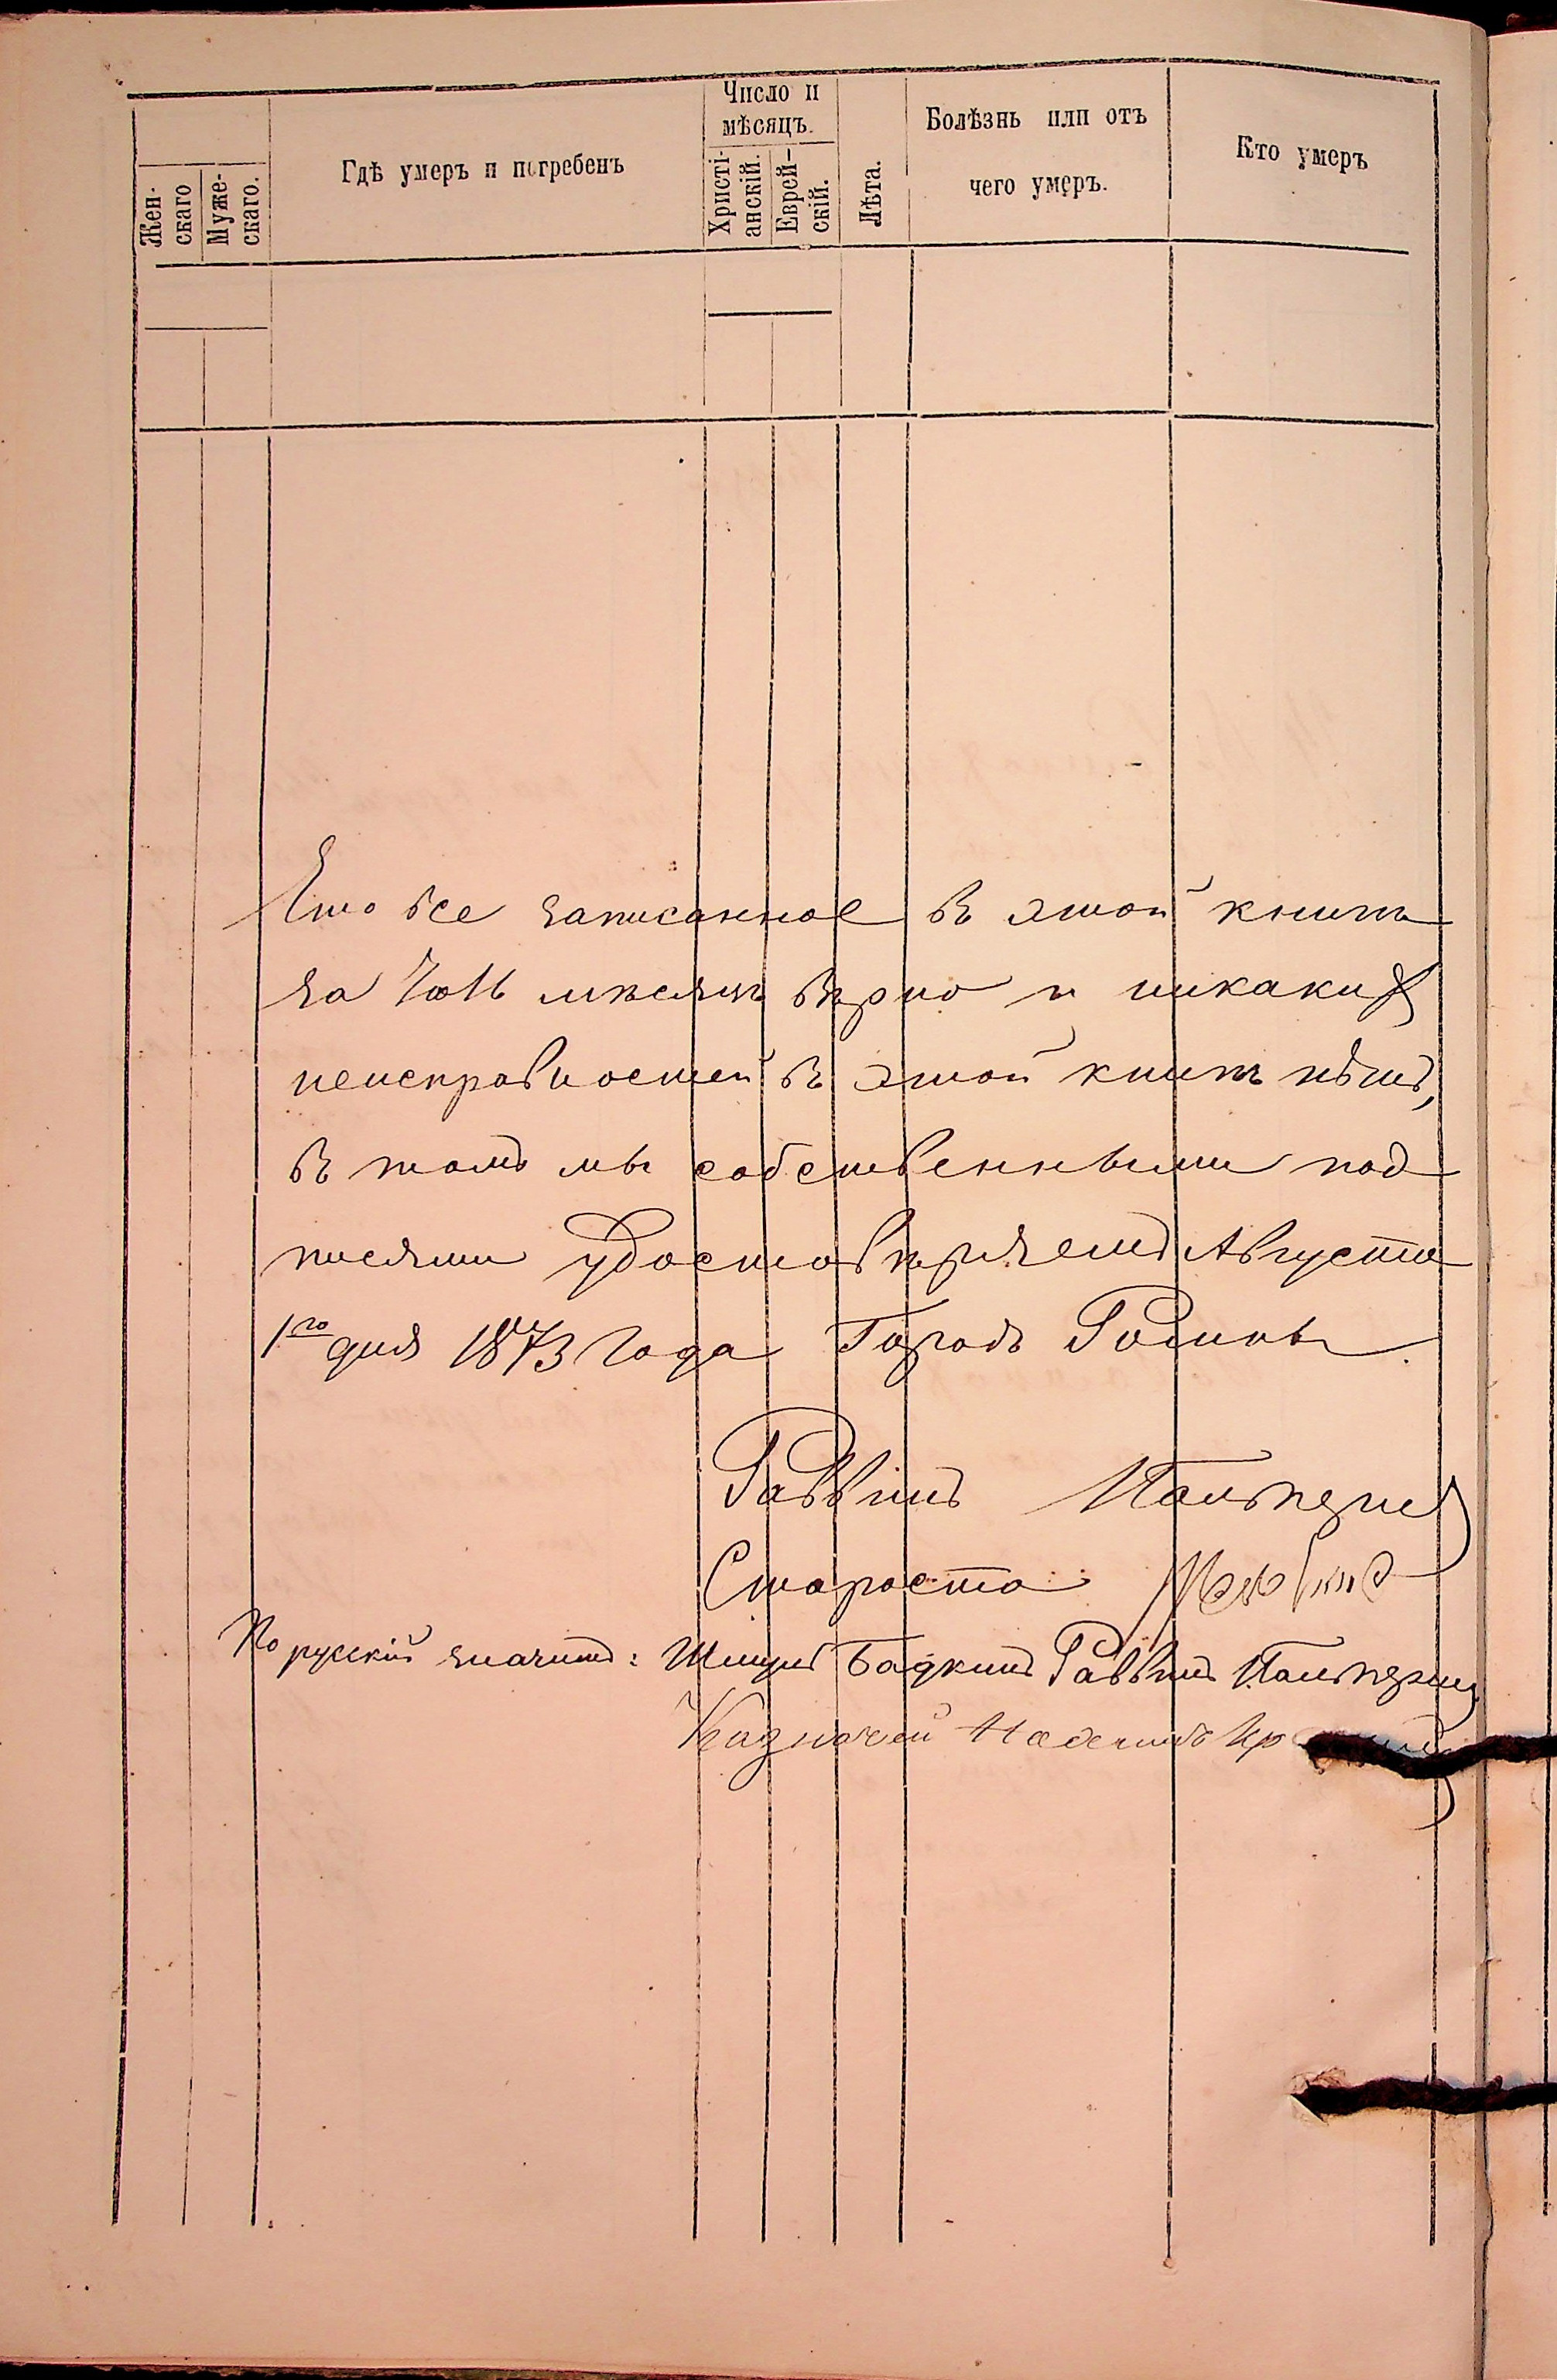 Жен-
скаго
Муже-
скаго.
Гдѣ умеръ и погребенъ
Число и
мѣсяцъ.
Христі-
анскій.
Еврей-
скій.
Лѣта.
Болѣзнь или отъ
чего умеръ.
Кто умеръ
Что все записанное въ этой книгѣ
за Юль мѣсяцъ вѣрно и никакихъ
неисправностей въ этой книгѣ нѣтъ,
въ томъ мы собственными под
писями удостовѣряемъ Августа
1го дня 1873 года Городъ Ромны
Раввинъ Гальперинъ
Староста
По русскій значитъ: Раввинъ Гальперинъ
Казначей